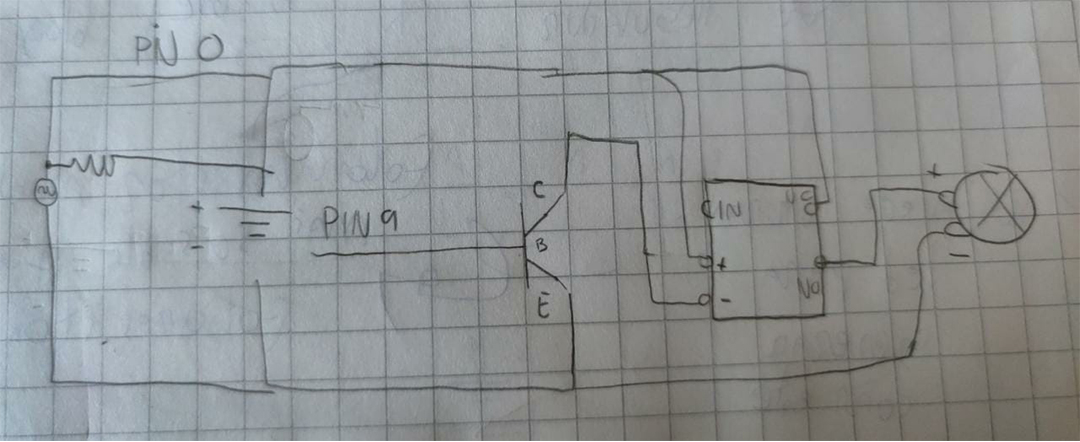 PiN 0
+
-
PIN 9
C
B
E
IN
+
-
NO
+
-